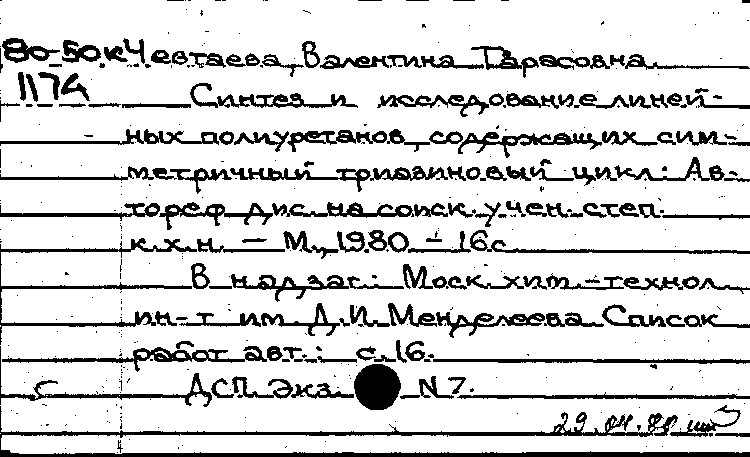 80-50к Чевтаева, Валентина Тарасовна.
1174 Синтез и исследование линей-
ных полиуретанов, содержащих сим-
метричный триазиновый цикл: Ав-
тореф дис. на соиск. учен. степ.
к.х.н. — М., 1980 - 16с
В надзаг.: Моск. хим.-технол.
ин-т им. Д.И. Менделеева Список
работ авт.: с. 16.
с ДСП. Экз. N 7.
29.04.80